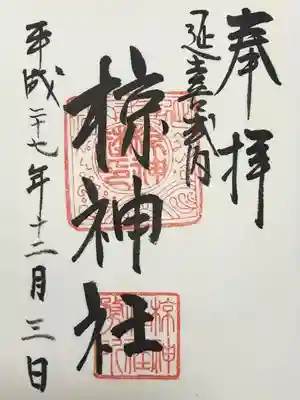 奉拝
延喜式内
椋神社
平成二十七年十二月三日